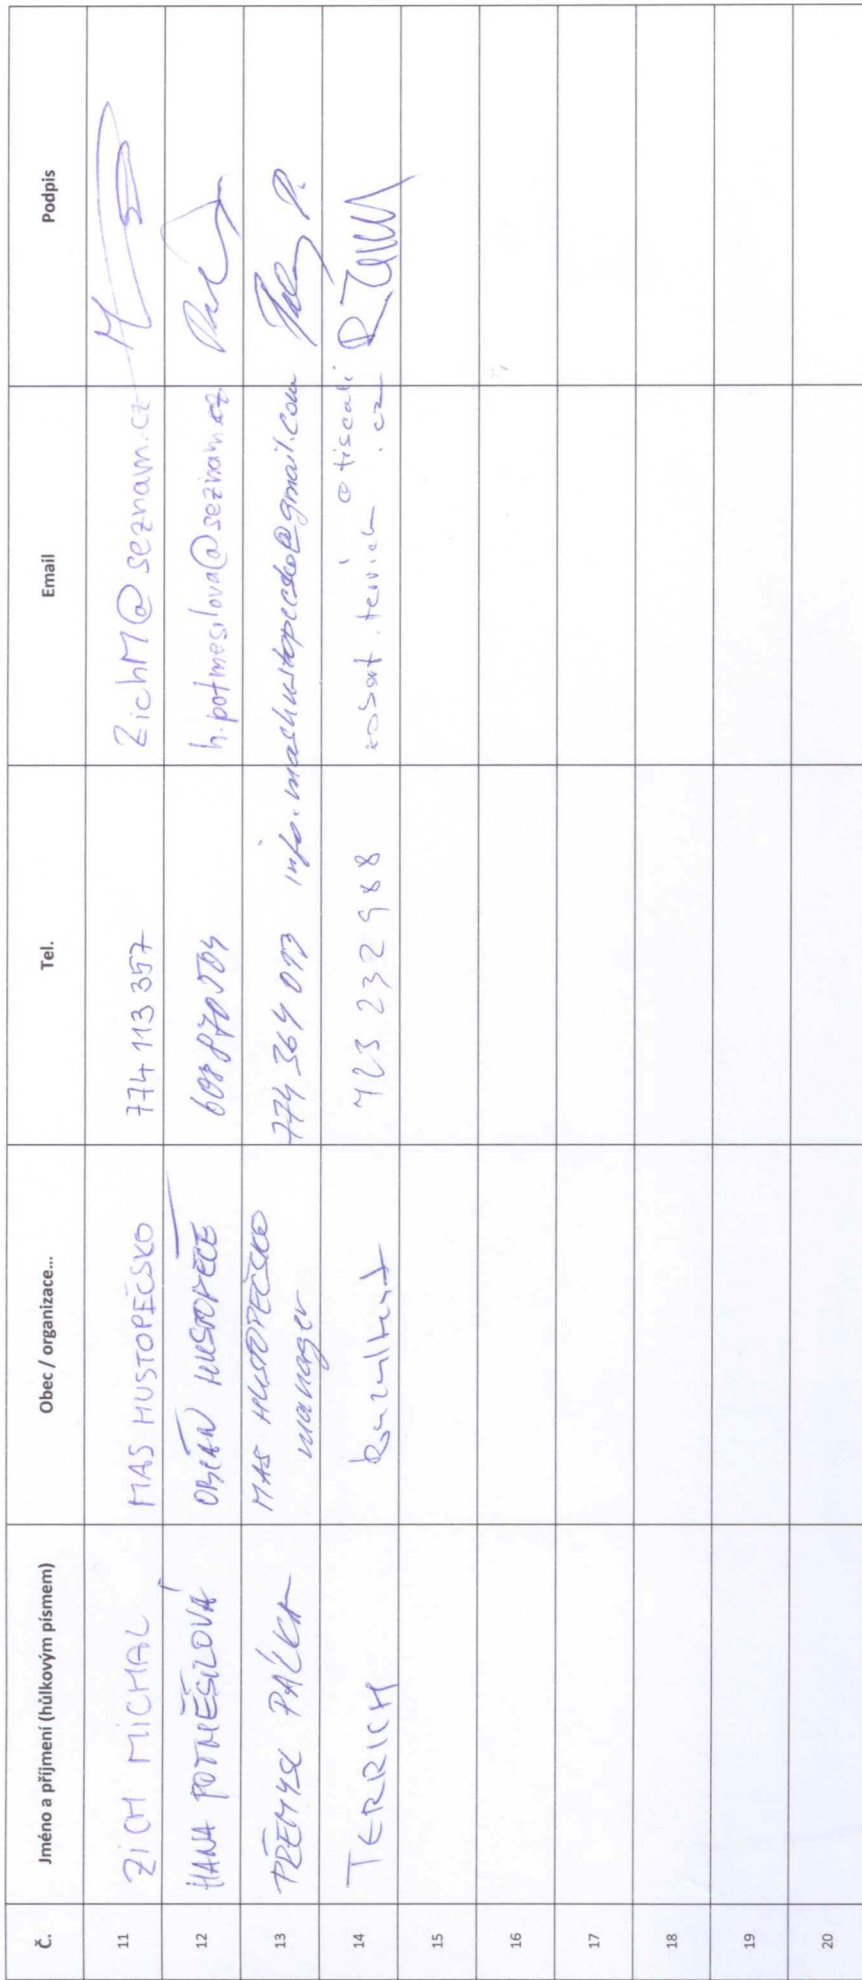 Č. Jméno a příjmení (hůlkovým písmem) Obec / organizace... Tel. Email Podpis
11 ZICH MICHAL MAS HUSTOPEČSKO 774 113 357 ZichM@seznam.cz
12 HANA POTMĚŠILOVÁ OBČAN HUSTOPEČE 608 870 504 h.potmesilova@seznam.cz
13 PŘEMYSL PÁLKA MAS HUSTOPEČSKO 774 364 013 info.mashustopecsko@gmail.com
manager
14 TERRICH konzultant 723 232 988 robert.terrich @tiscali
.cz
15
16
17
18
19
20